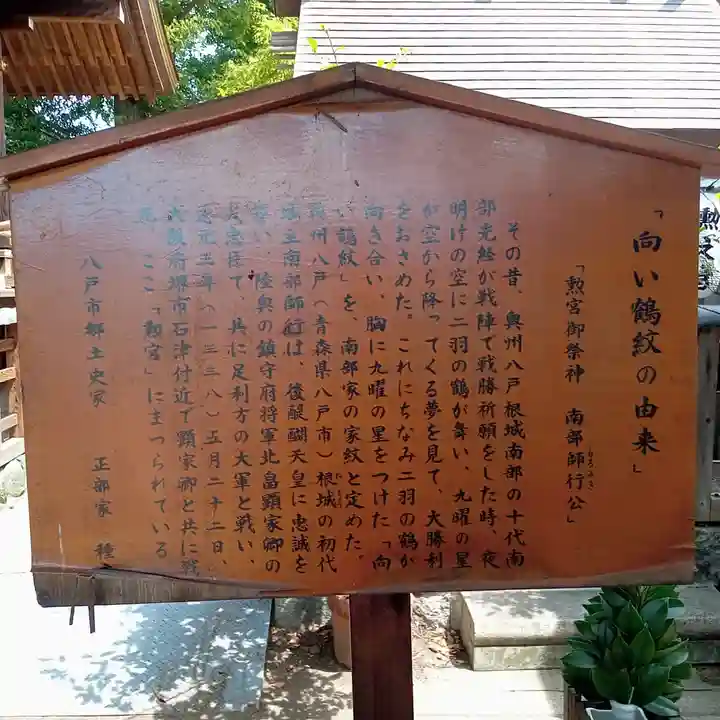 「向い鶴紋の由来」
「勲宮御祭神　南部師行公」
もろゆき
その昔、奥州八戸根城南部の十代南
部光経が戦陣で戦勝祈願をした時、夜
明けの空に二羽の鶴が舞い、九曜の星
が空から降ってくる夢を見て、大勝利
をおさめた。これにちなみ二羽の鶴が
向き合い、胸に九曜の星をつけた「向
い鶴紋」を、南部家の家紋と定めた。
奥州八戸（青森県八戸市）根城の初代
城主南部師行は、後醍醐天皇に忠誠を
誓い、陸奥の鎮守府将軍北畠顕家卿の
忠臣で、共に足利方の大軍と戦い、
延元三年（一三三八）五月二十二日、
大阪府堺市石津付近で顕家卿と共に戦
死、ここ「勲宮」にまつられている
八戸市郷土史家　正部家　種